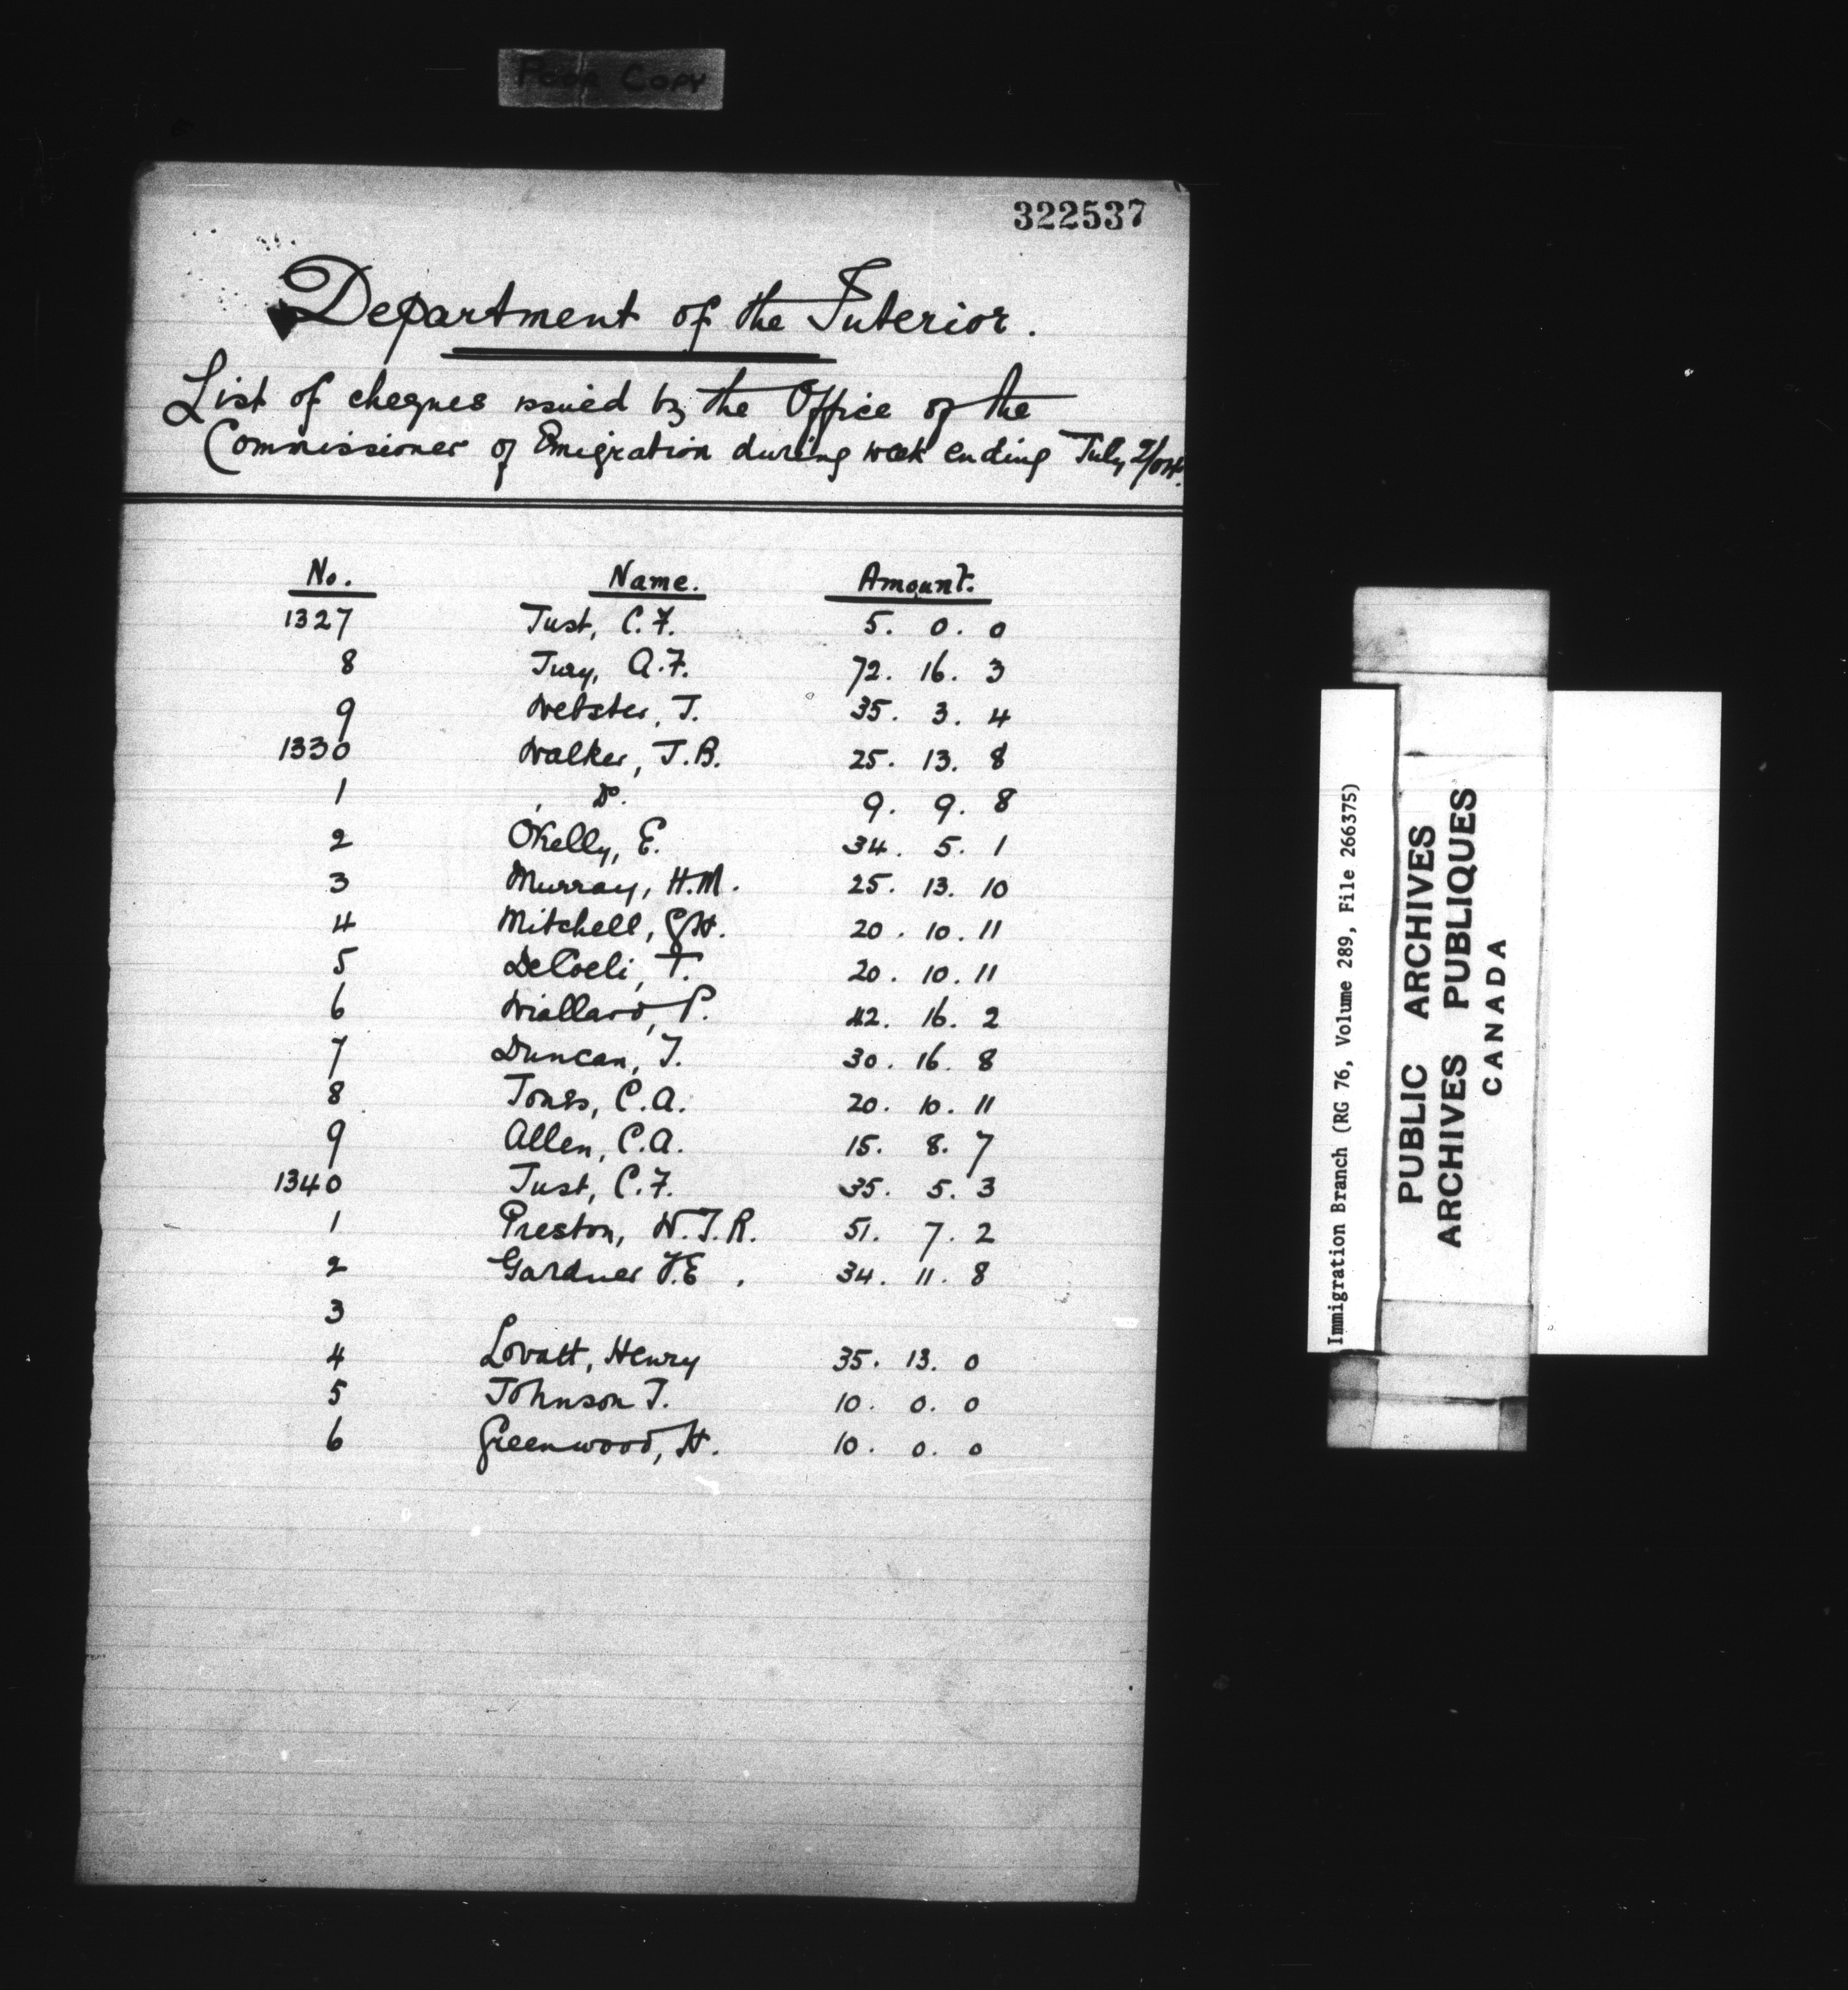 Poor Copy
322537
Department of the Interior.
List of cheques issued by the Office of the
Commissioner of Emigration during week ending July 2/04.
No. Name. Amount.
1327 Just, C.F. 5. 0. 0
8 Jury, A.F. 72. 16. 3
9 Webster, J. 35. 3. 4
1330 Walker, J.B. 25. 13. 8
1 , Do. 9. 9. 8
2 O'Kelly, E. 34. 5. 1
3 Murray, H.M. 25. 13. 10
4 Mitchell, G.H. 20. 10. 11
5 DeCoeli, T. 20. 10. 11
6 Wiallard, P. 42. 16. 2
7 Duncan, J. 30. 16. 8
8 Jones, C.A. 20. 10. 11
9 Allen, C.A. 15. 8. 7
1340 Just, C.F. 35. 5. 3
1 Preston, W.T.R. 51. 7. 2
2 Gardner F.E. 34. 11. 8
3
4 Lovatt, Henry 35. 13. 0
5 Johnson J. 10. 0. 0
6 Greenwood, H. 10. 0. 0
Immigration Branch (RG 76, Volume 289, File 266375)
PUBLIC ARCHIVES
ARCHIVES PUBLIQUES
CANADA